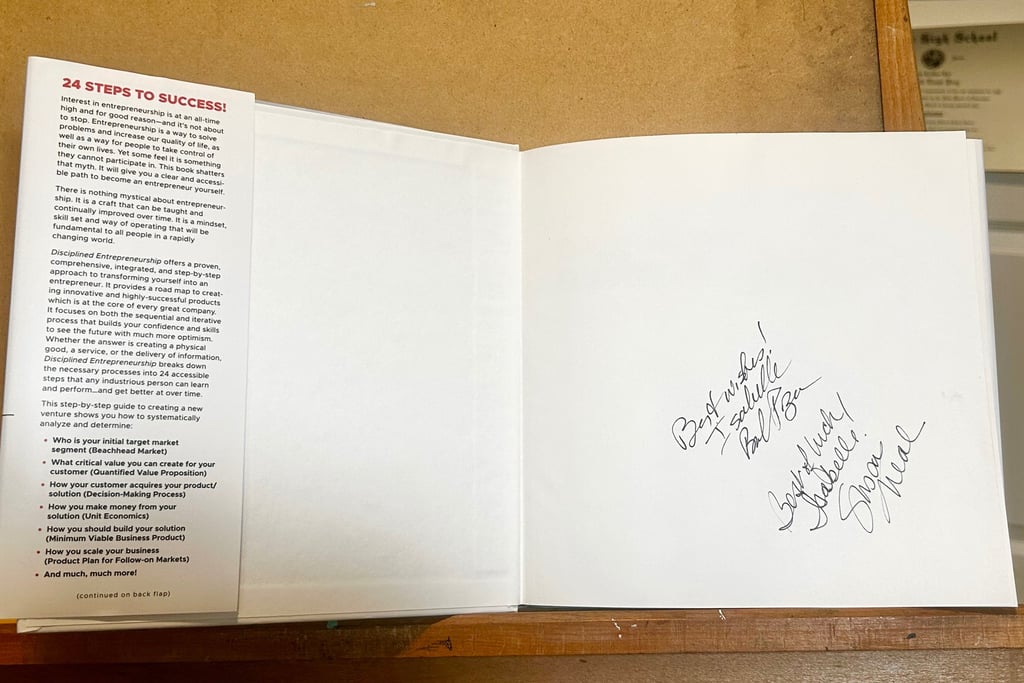 24 STEPS TO SUCCESS!
Interest in entrepreneurship is at an all-time
high and for good reason—and it's not about
to stop. Entrepreneurship is a way to solve
problems and increase our quality of life, as
well as a way for people to take control of
their own lives. Yet some feel it is something
they cannot participate in. This book shatters
that myth. It will give you a clear and accessi-
ble path to become an entrepreneur yourself.
There is nothing mystical about entrepreneur-
ship. It is a craft that can be taught and
continually improved over time. It is a mindset,
skill set and way of operating that will be
fundamental to all people in a rapidly
changing world.
Disciplined Entrepreneurship offers a proven,
comprehensive, integrated, and step-by-step
approach to transforming yourself into an
entrepreneur. It provides a road map to creat-
ing innovative and highly-successful products
which is at the core of every great company.
It focuses on both the sequential and iterative
process that builds your confidence and skills
to see the future with much more optimism.
Whether the answer is creating a physical
good, a service, or the delivery of information,
Disciplined Entrepreneurship breaks down
the necessary processes into 24 accessible
steps that any industrious person can learn
and perform—and get better at over time.
This step-by-step guide to creating a new
venture shows you how to systematically
analyze and determine:
• Who is your initial target market
segment (Beachhead Market)
• What critical value you can create for your
customer (Quantified Value Proposition)
• How your customer acquires your product/
solution (Decision-Making Process)
• How you make money from your
solution (Unit Economics)
• How you should build your solution
(Minimum Viable Business Product)
• How you scale your business
(Product Plan for Follow-on Markets)
• And much, much more!
(continued on back flap)
Best wishes!
Isabelle
Best of luck!
Isabelle!
Neal
High School